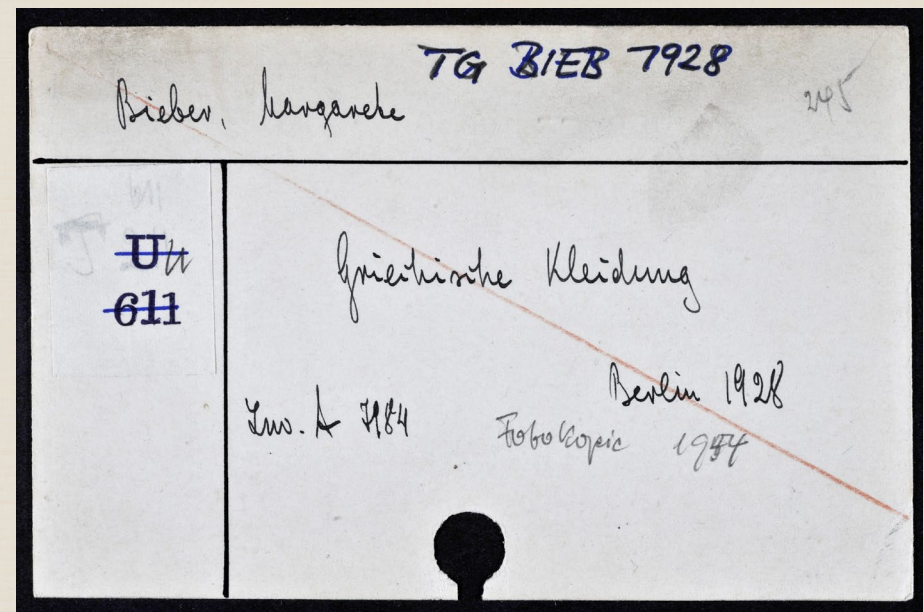 TG BIEB 1928
Bieber, Margarete
245
U
611
Griechische Kleidung
Berlin 1928
Inv. A 7184
Fotokopie